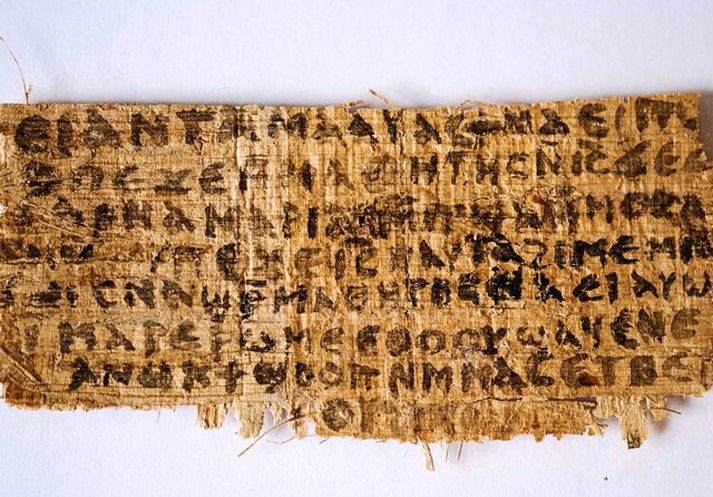 ⲉⲓ ⲁⲛ ⲧⲁⲙⲁⲁⲩ ⲁⲥϯ ⲛⲁⲉⲓ ⲡ
ⲡⲉϫⲉ ⲙⲙⲁⲑⲏⲧⲏⲥ ⲛⲓⲥ ϫⲉ ⲥ
ⲁⲣⲛⲁ ⲙⲁⲣⲓⲁⲙ
ⲡⲉϫⲉ ⲓⲥ ⲧⲁϩⲓⲙⲉ ⲙⲛ
ⲥⲛⲁϣⲣⲙⲁⲑⲏⲧⲏⲥ ⲛⲁⲉⲓ ⲁⲩⲱ
ⲓ ⲙⲁⲣⲉⲣⲱⲙⲉ ⲉⲑⲟⲟⲩ ϣⲁϥⲉ ⲛⲉ
ⲁⲛⲟⲕ ϯϣⲟⲟⲡ ⲛⲙⲙⲁⲥ ⲉⲧⲃⲉ